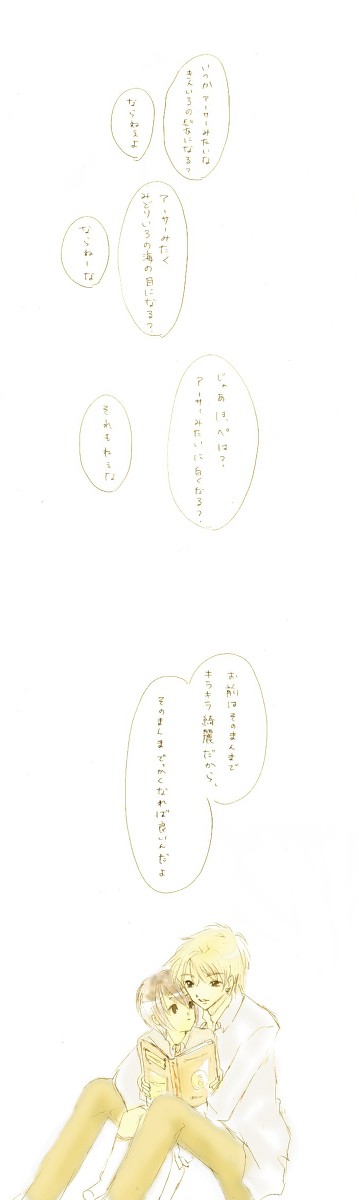 いつかアーサーみたいな
キスいろの髪になる?
ならねぇよ
アーサーみたく
みどりいろの海の目になる?
ならねーな
じゃあほっぺは?
アーサーみたいに白くなる?
それもねぇな
お前はそのまんまで
キラキラ綺麗だから、
そのまんまでっかくなれば良いんだよ